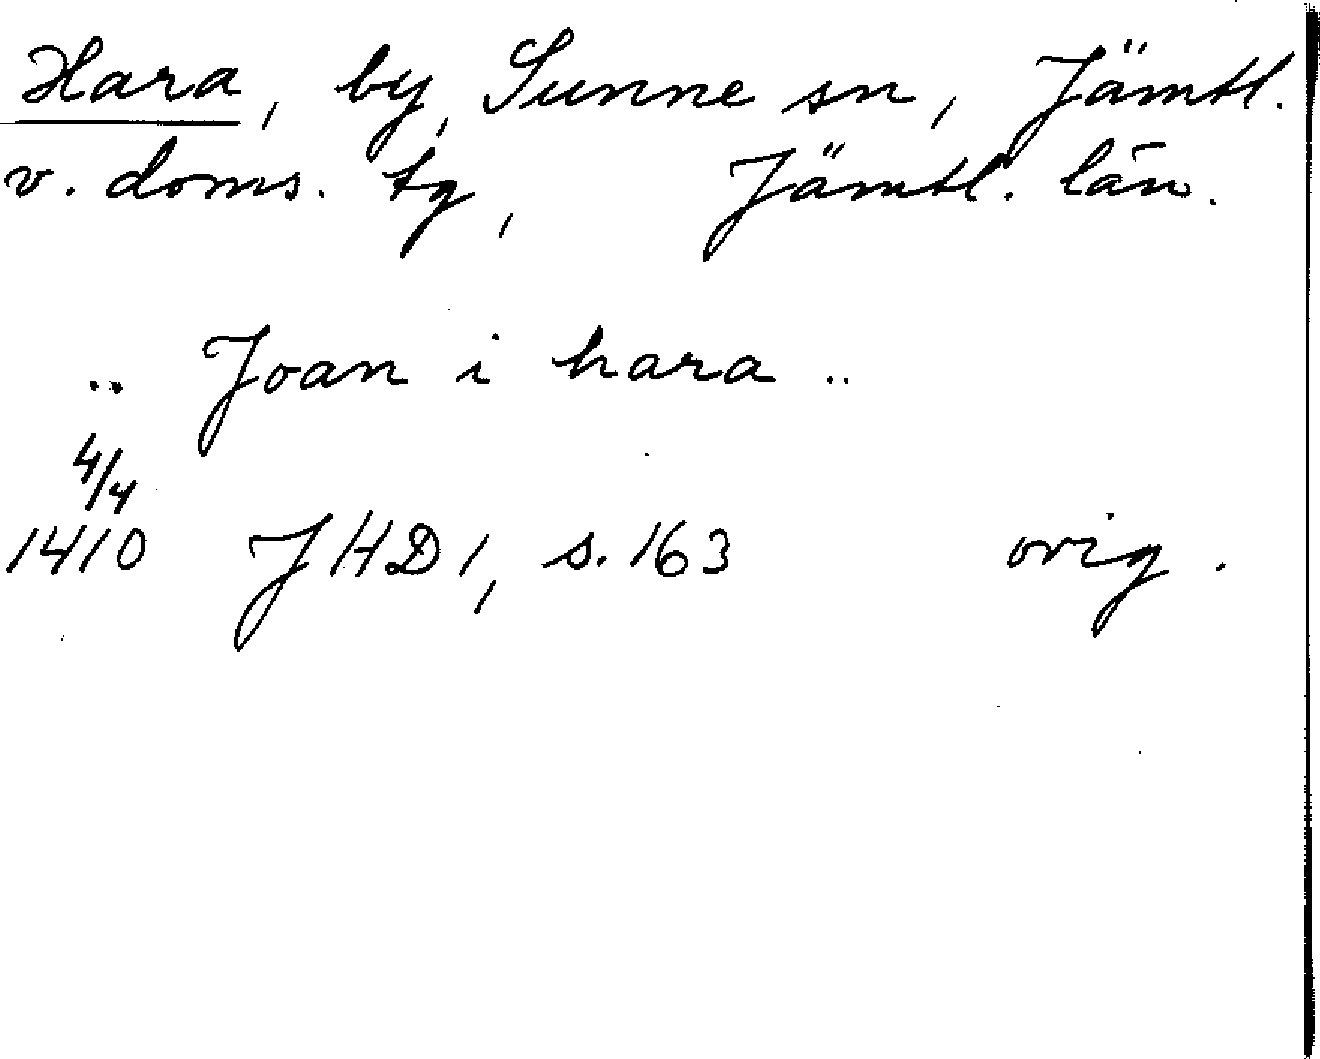 Hara, by, Sunne sn, Jämtl.
v. doms. tg, Jämtl. län.
.. Joan i hara ..
4/4
1410 JHD 1, s. 163 orig.